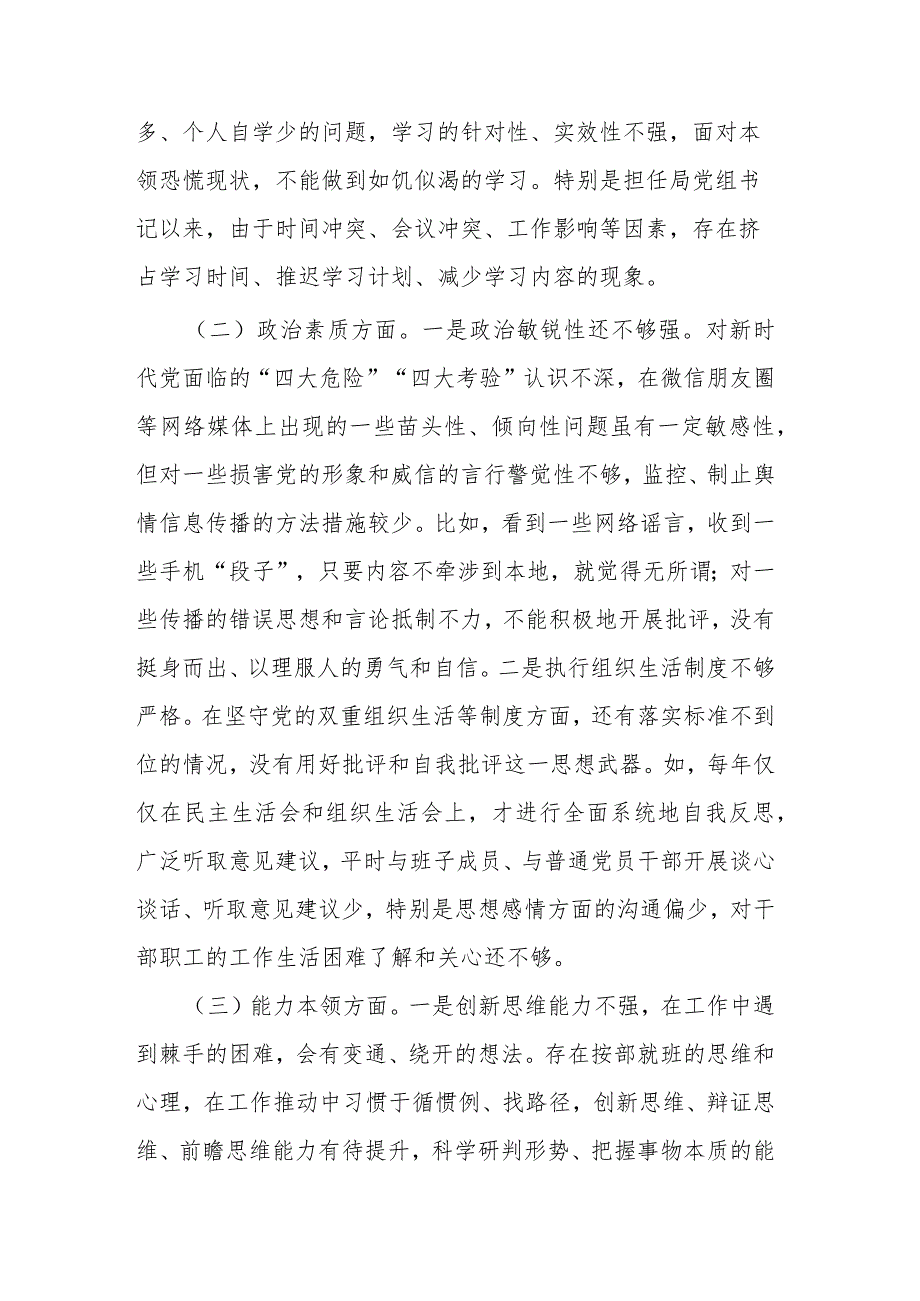 多、个人自学少的问题，学习的针对性、实效性不强，面对本
领恐慌现状，不能做到如饥似渴的学习。特别是担任局党组书
记以来，由于时间冲突、会议冲突、工作影响等因素，存在挤
占学习时间、推迟学习计划、减少学习内容的现象。
（二）政治素质方面。一是政治敏锐性还不够强。对新时
代党面临的“四大危险”“四大考验”认识不深，在微信朋友圈
等网络媒体上出现的一些苗头性、倾向性问题虽有一定敏感性，
但对一些损害党的形象和威信的言行警觉性不够，监控、制止舆
情信息传播的方法措施较少。比如，看到一些网络谣言，收到一
些手机“段子”，只要内容不牵涉到本地，就觉得无所谓；对一
些传播的错误思想和言论抵制不力，不能积极地开展批评，没有
挺身而出、以理服人的勇气和自信。二是执行组织生活制度不够
严格。在坚守党的双重组织生活等制度方面，还有落实标准不到
位的情况，没有用好批评和自我批评这一思想武器。如，每年仅
仅在民主生活会和组织生活会上，才进行全面系统地自我反思，
广泛听取意见建议，平时与班子成员、与普通党员干部开展谈心
谈话、听取意见建议少，特别是思想感情方面的沟通偏少，对干
部职工的工作生活困难了解和关心还不够。
（三）能力本领方面。一是创新思维能力不强，在工作中遇
到棘手的困难，会有变通、绕开的想法。存在按部就班的思维和
心理，在工作推动中习惯于循惯例、找路径，创新思维、辩证思
维、前瞻思维能力有待提升，科学研判形势、把握事物本质的能